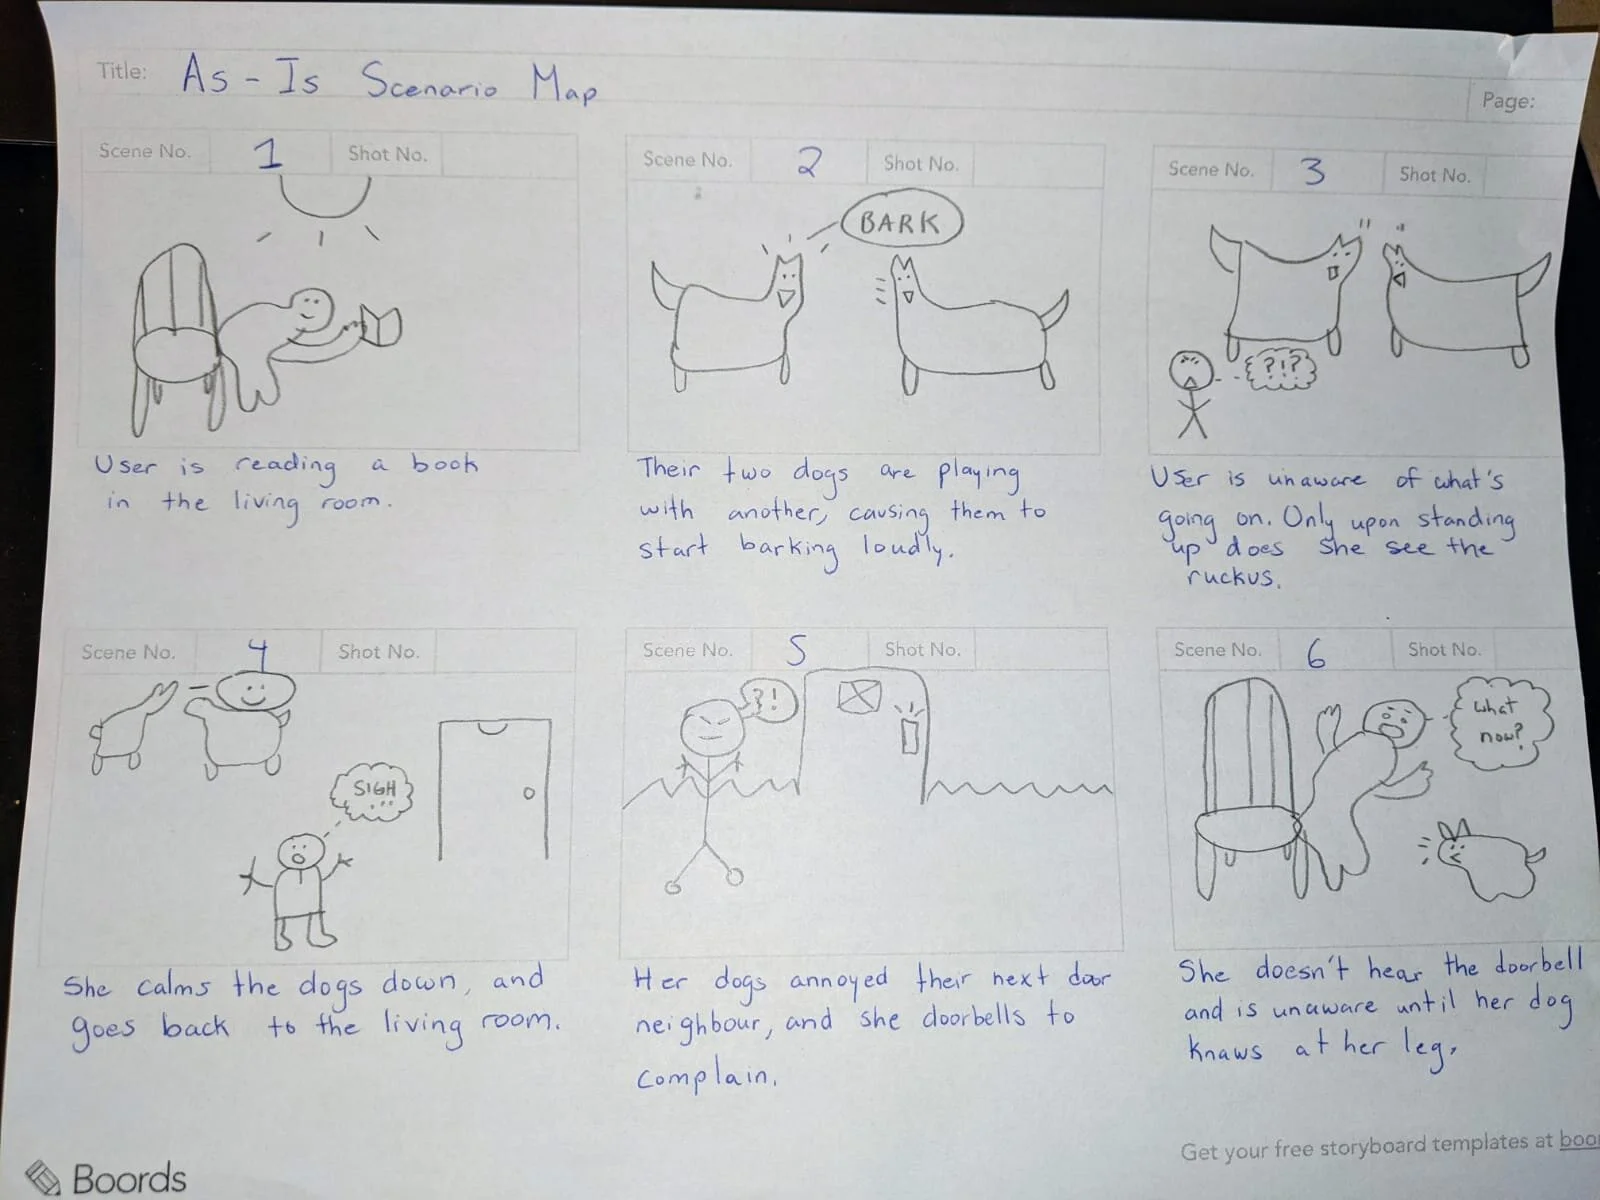 Title: As - Is Scenario Map
Page:
Scene No. 1 Shot No.
User is reading a book
in the living room.
Scene No. 2 Shot No.
BARK
Their two dogs are playing
with another, causing them to
start barking loudly.
Scene No. 3 Shot No.
?!?
User is unaware of what's
going on. Only upon standing
up does she see the
ruckus.
Scene No. 4 Shot No.
SIGH
...
She calms the dogs down, and
goes back to the living room.
Scene No. 5 Shot No.
?!
Her dogs annoyed their next door
neighbour, and she doorbells to
complain.
Scene No. 6 Shot No.
What
now?
She doesn't hear the doorbell
and is unaware until her dog
knaws at her leg.
Boords
Get your free storyboard templates at boo